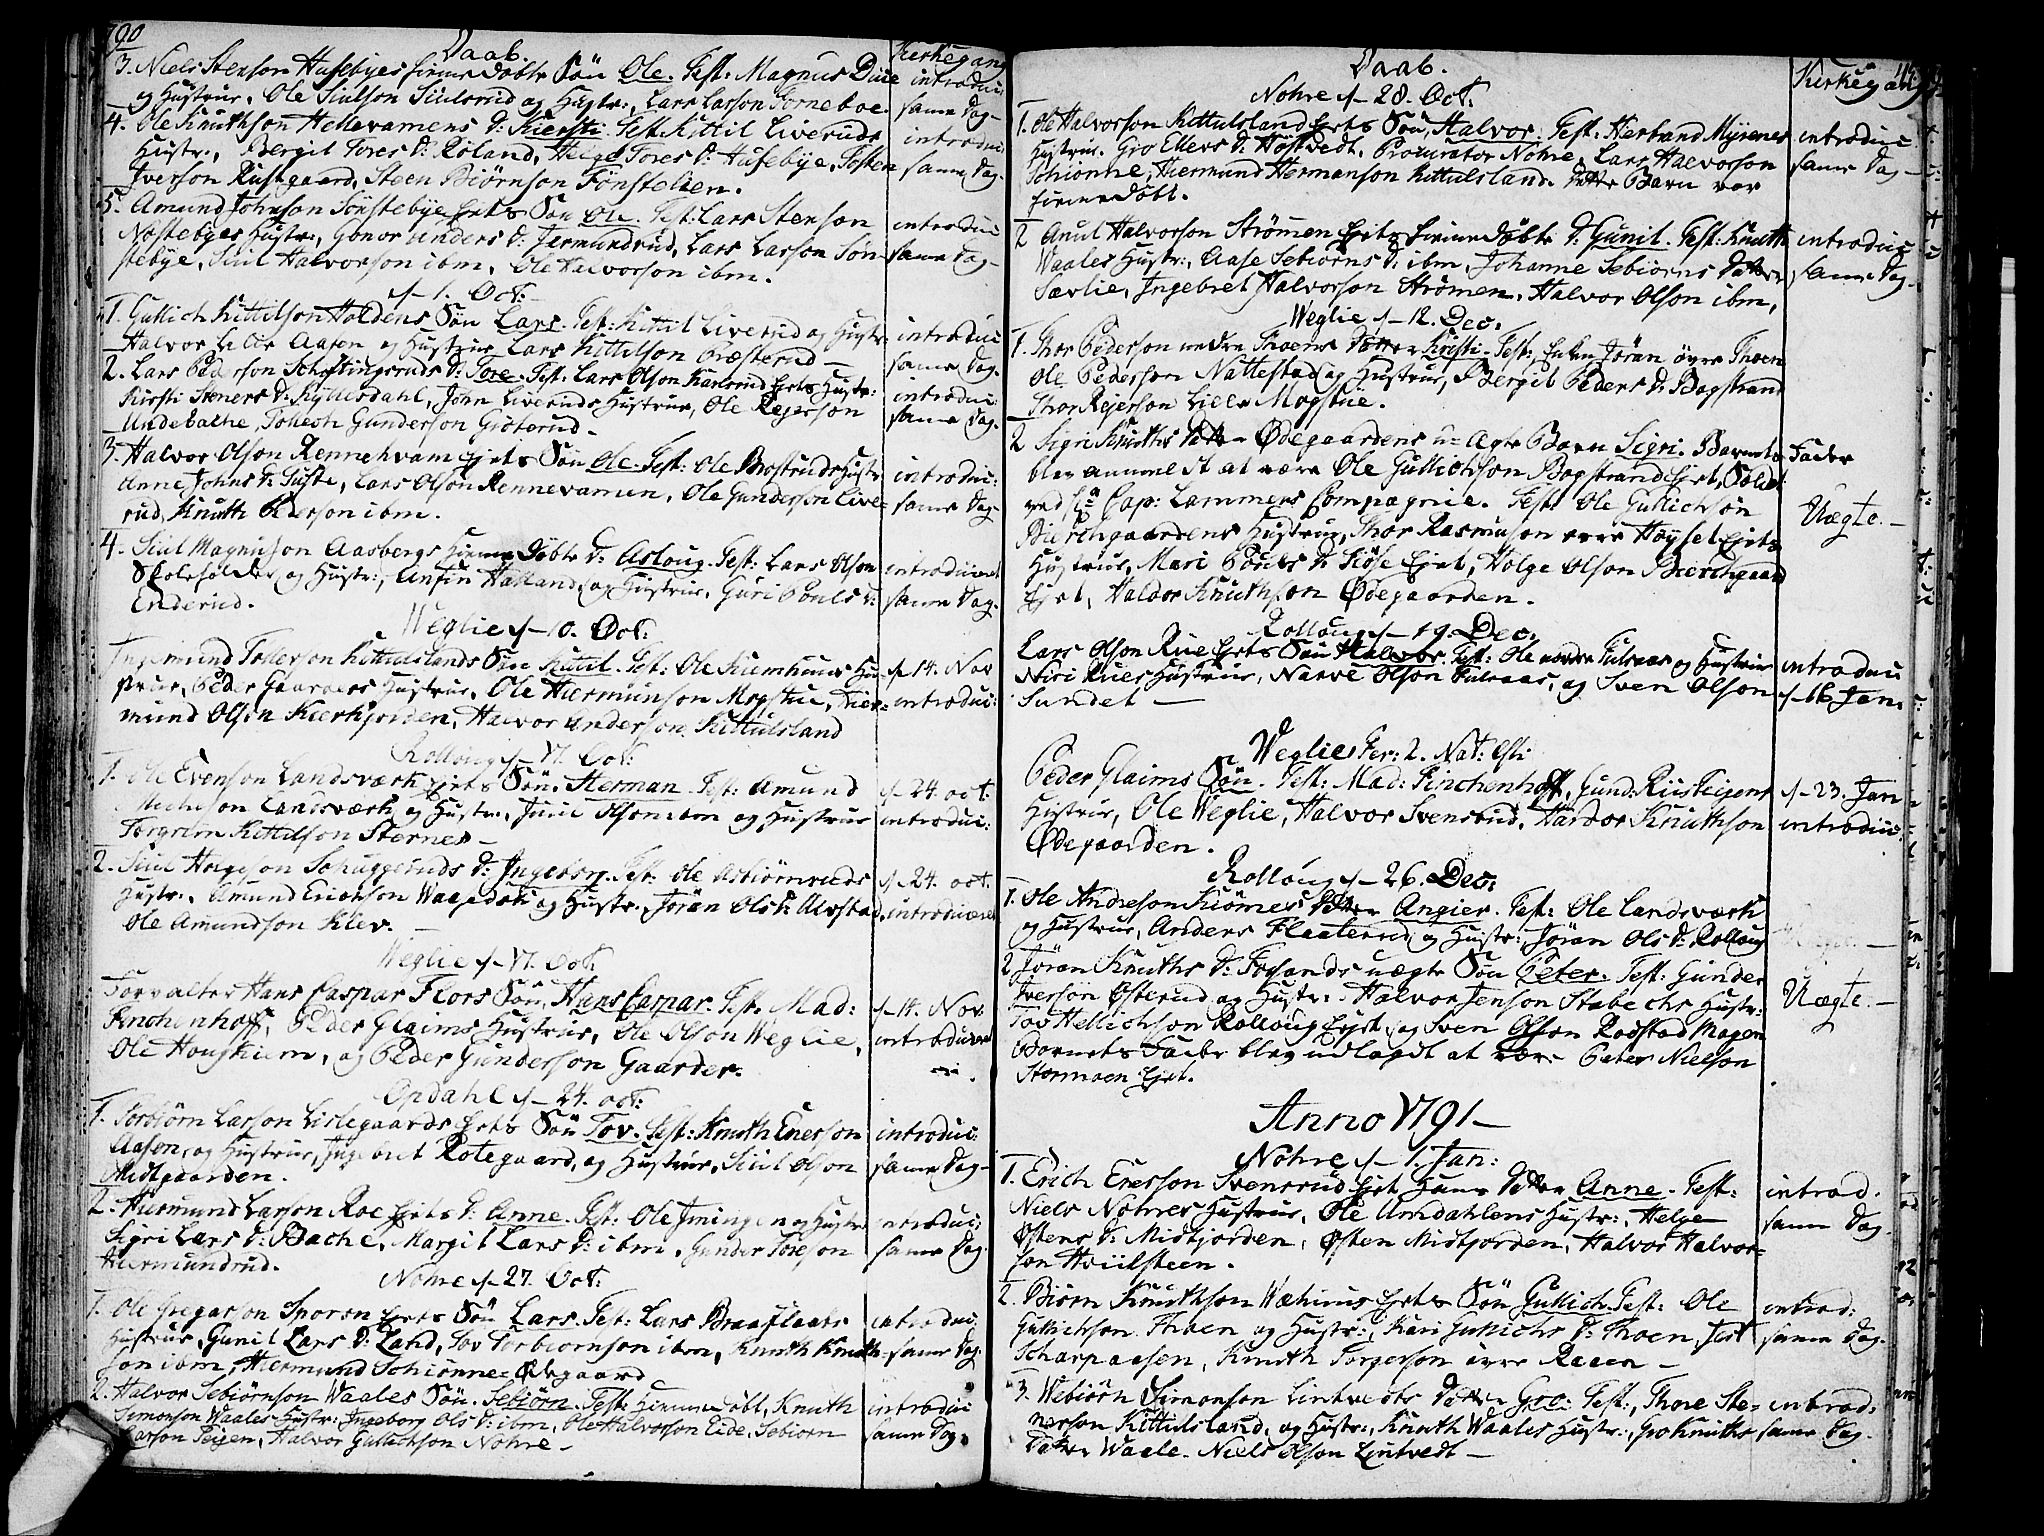 790
Daab.
Kirkegang
3. Niels Stenson Husebyes hiemedöbte Sön Ole. Test: Magnus Due
og Hustrue, Ole Siulson Siulsrud og Hustr:, Lars Larson Torneboe.
introduc:
same Dag-
4. Ole Knuthson Hellevamens D: Kiersti. Test: Kittil Liveruds
Hustr:, Bergit Tores D: Roland, Helge Tores D: Husebye, Tosten
Iverson Rustgaard, Steen Biörnson Fönstelien.
introduc
same Dag-
5. Amund Johnson Sönstebye Ejets Sön Ole. Test: Lars Stenson
Nöstebyes Hustr:, Gonor Anders D: Jermundrud, Lars Larson Sön-
stebye, Siul Halvorson ibm, Ole Halvorson ibm.
introduc
same Dag-
d- 1. Oct:
1. Gullich Kittilson Holdens Sön Lars. Test: Kittil Liverud og Hustr:
Halvor Lille Aasen og Hustrue, Lars Kittilson Præsterud -
introduc
same Dag.
2. Lars Pederson Schiftingsruds D: Tore. Test: Lars Olson Karlsrud Ejets Hustr:
Kirsti Steners D: Kyllesdahl, John Liveruds Hustrue, Ole Rejerson
Undebakke, Tollesh Gunderson Gisterud -
introduc:
same Dag.
3. Halvor Olson Rennehvam Ejets Sön Ole. Test: Ole Brostruds Hustr:
Anne Johns D: Tufte, Lars Olson Rennevamen, Ole Gunderson Live-
rud, Knuth Pederson ibm.
introduc:
same Dag-
4. Siul Magnuson Aasbergs hieme döbte D: Asloug. Test: Lars Olson
Skoleholder og Hustr:, Ansin Hafland, og Hustrue, Guri Pouls D:
Enderud.
introduceret
same Dag.
Weglie d- 10. Oct:
Ingemund Tollerson Kittilslands Sön Kittil. Test: Ole Kiemhuus Hu-
strue, Peder Gaarders Hustrue, Ole Hiermunson Mogstue, Hier-
mund Olson Kierkjorden, Halvor Anderson Kittulsland
d- 14. Nov
introduc:
Rolloug d- 17. Oct:
1. Ole Evenson Landsværk Ejets Sön. Herman. Test: Amund
Michelson Landsværk og Hustr:, Juul Olson ibm og Hustrue
Torgrim Kittilson Sternes -
d- 24. oct:
introduc:
2. Siul Helgeson Schuggeruds D: Ingeborg. Test: Ole Asbiörnruds
Hustr:, Amund Erichson Waagedok og Hustr:, Jöran Ols D: Alvstad,
Ole Amundson Klev. -
d- 24. oct.
introduceret
Weglie d- 17. Oct:
Forvalter Hans Caspar Flors Sön, Hans Caspar. Test: Mad:
Finchenhoff, Peder Glaims Hustrue, Ole Olson Weglie,
Ole Hougkiem, og Peder Gunderson Gaarder.
d- 14. Nov
introduceret
Opdahl d- 24. oct:
1. Torbiörn Larson Lislegaards Ejets Sön Tov. Test: Knuth Enerson
Aasen, og Hustrue, Ingebret Rotegaard, og Hustrue, Siul Olson
Midtgaarden.
introduc:
same Dag-
2. Hiermund Larson Roe Ejets D: Anne. Test: Ole Imingen og Hustr:
Sigri Lars D: Bache, Margit Lars D: ibm, Gunder Toreson
Hiermundrud.
introduc:
same Dag-
Nohre d- 27. Oct:
1. Ole Gregarson Sporen Ejets Sön Lars. Test: Lars Braaflaats
Hustrue, Gunil Lars D: Land, Tov Torbiornson ibm, Knuth Knuth-
son ibm, Hiermund Schiönne-Ödegaard
introduc:
same Dag-
2. Halvor Sebiörnson Waales Sön. Sebiörn. Test: hiemedöbt, Knuth
Simonson Waales Hustr: Ingeborg Ols D: ibm, Ole Halvorson Eide, Sebiorn
Larson Teigen, Halvor Gullichson Nohre -
introduc
same Dag.
Daab.
Kirkegang
Nohre d- 28. Oct:
1. Ole Halvorson Kittulsland Ejets Sön, Halvor. Test: Herbrand Myrenes
Hustrue. Gro Ellevs D: Höstvedt, Procurator Nohre, Lars Halvorson
Schionne, Hiermund Hermanson Kittulsland. Dette Barn var
hiemedöbt.
introduc
same Dag-
2 Anul Halvorson Strömen Ejets hiemedöbte D: Gunil. Test: Knuth
Waales Hustr:, Aase Sebiorns D: ibm, Johanne Sebiorns Datter
Sævlie, Ingebret Halvorson Strömen, Halvor Olson ibm,
introduc
same Dag-
Weglie d- 12. Dec:
1. Thor Pederson nedre Thoens Datter Kristi. Test: Enken Jöran övre Thoen
Ole Pederson Nattestad og Hustrue, Bergit Peders D: Bogstrand
Thor Rejerson Lille Mogstue.
2 Sigri Knuths Datter Ödegaardens u-ægte Barn Sigri. Barnets Fader
blev anmeldt at være Ole Gullichson Bogstrand Ejet, Soldat
ved Cap: Lammers Compagnie. Test: Ole Gullichson
Bierchgaardens Hustrue, Thor Rasmuson övre Höysel Ejets
Hustrue, Mari Pouls D: Giöse Ejet, Holge Olson Bierchgaard
Ejet, Haldor Knuthson Ödegaarden.
Uægte. -
Rolloug d- 19. Dec:
Lars Olson Rue Ejets Sön Halvor. Test: Ole nordre Fulsaas og Hustrue
Niri Rues Hustrue, Narve Olson Fulsaas, og Sven Olson
Sundet -
introduc
d- 16. Jan.
Weglie Fer: 2. Nat: Chti
Peder Glaims Sön. Test: Mad: Finchenhoff, Gund: Riisteigens
Hustrue, Ole Weglie, Halvor Svensrud, Hardor Knuthson
Ödegaarden.
d- 23. Jan
introduc:
Rolloug d- 26. Dec:
1. Ole Andreson Kiömes Datter Angier. Test: Ole Landsværk
og Hustrue, Anders Flaaterud, og Hustr:, Jöran Ols D: Rolloug
2 Jöran Knuths D: Fosslands uægte Sön Peter. Test: Gunder
Iverson Österud og Hustr: Halvor Jenson Stabechs Hustr:
Tov Hellichson Rolloug Ejet, og Sven Olson Rodstad Mogen
Barnets Fader blev udlagdt at være Peter Nielson
Stormoen Ejet.
Uægte. -
Anno 1791 -
Nohre d- 1. Jan:
1. Erich Enerson Svensrud Ejet hans Datter Anne. Test:
Niels Nohres Hustrue, Ole Amdahlens Hustr:, Helge
Östens D: Midtjorden, Östen Midtjorden, Halvor Halvor-
son Hviilsteen.
introd.
same Dag
2. Biörn Knuthson Wæhuus Ejets Sön Gullich. Test: Ole
Gullichson Thoen og Hustr:, Kari Gullichs D: Thoen, Jert
Scharpaasen, Knuth Torgerson övre Raaen -
introd:
same Dag.
3. Webiörn Simonson Lintvedts Datter Groe: Test:, Thore Ste-
nerson Kittulsland, og Hustr:, Knuth Waales Hustr:, Gro Knuths
Datter Waale. Niels Olson Lintvedt -
introd:
same Dag.